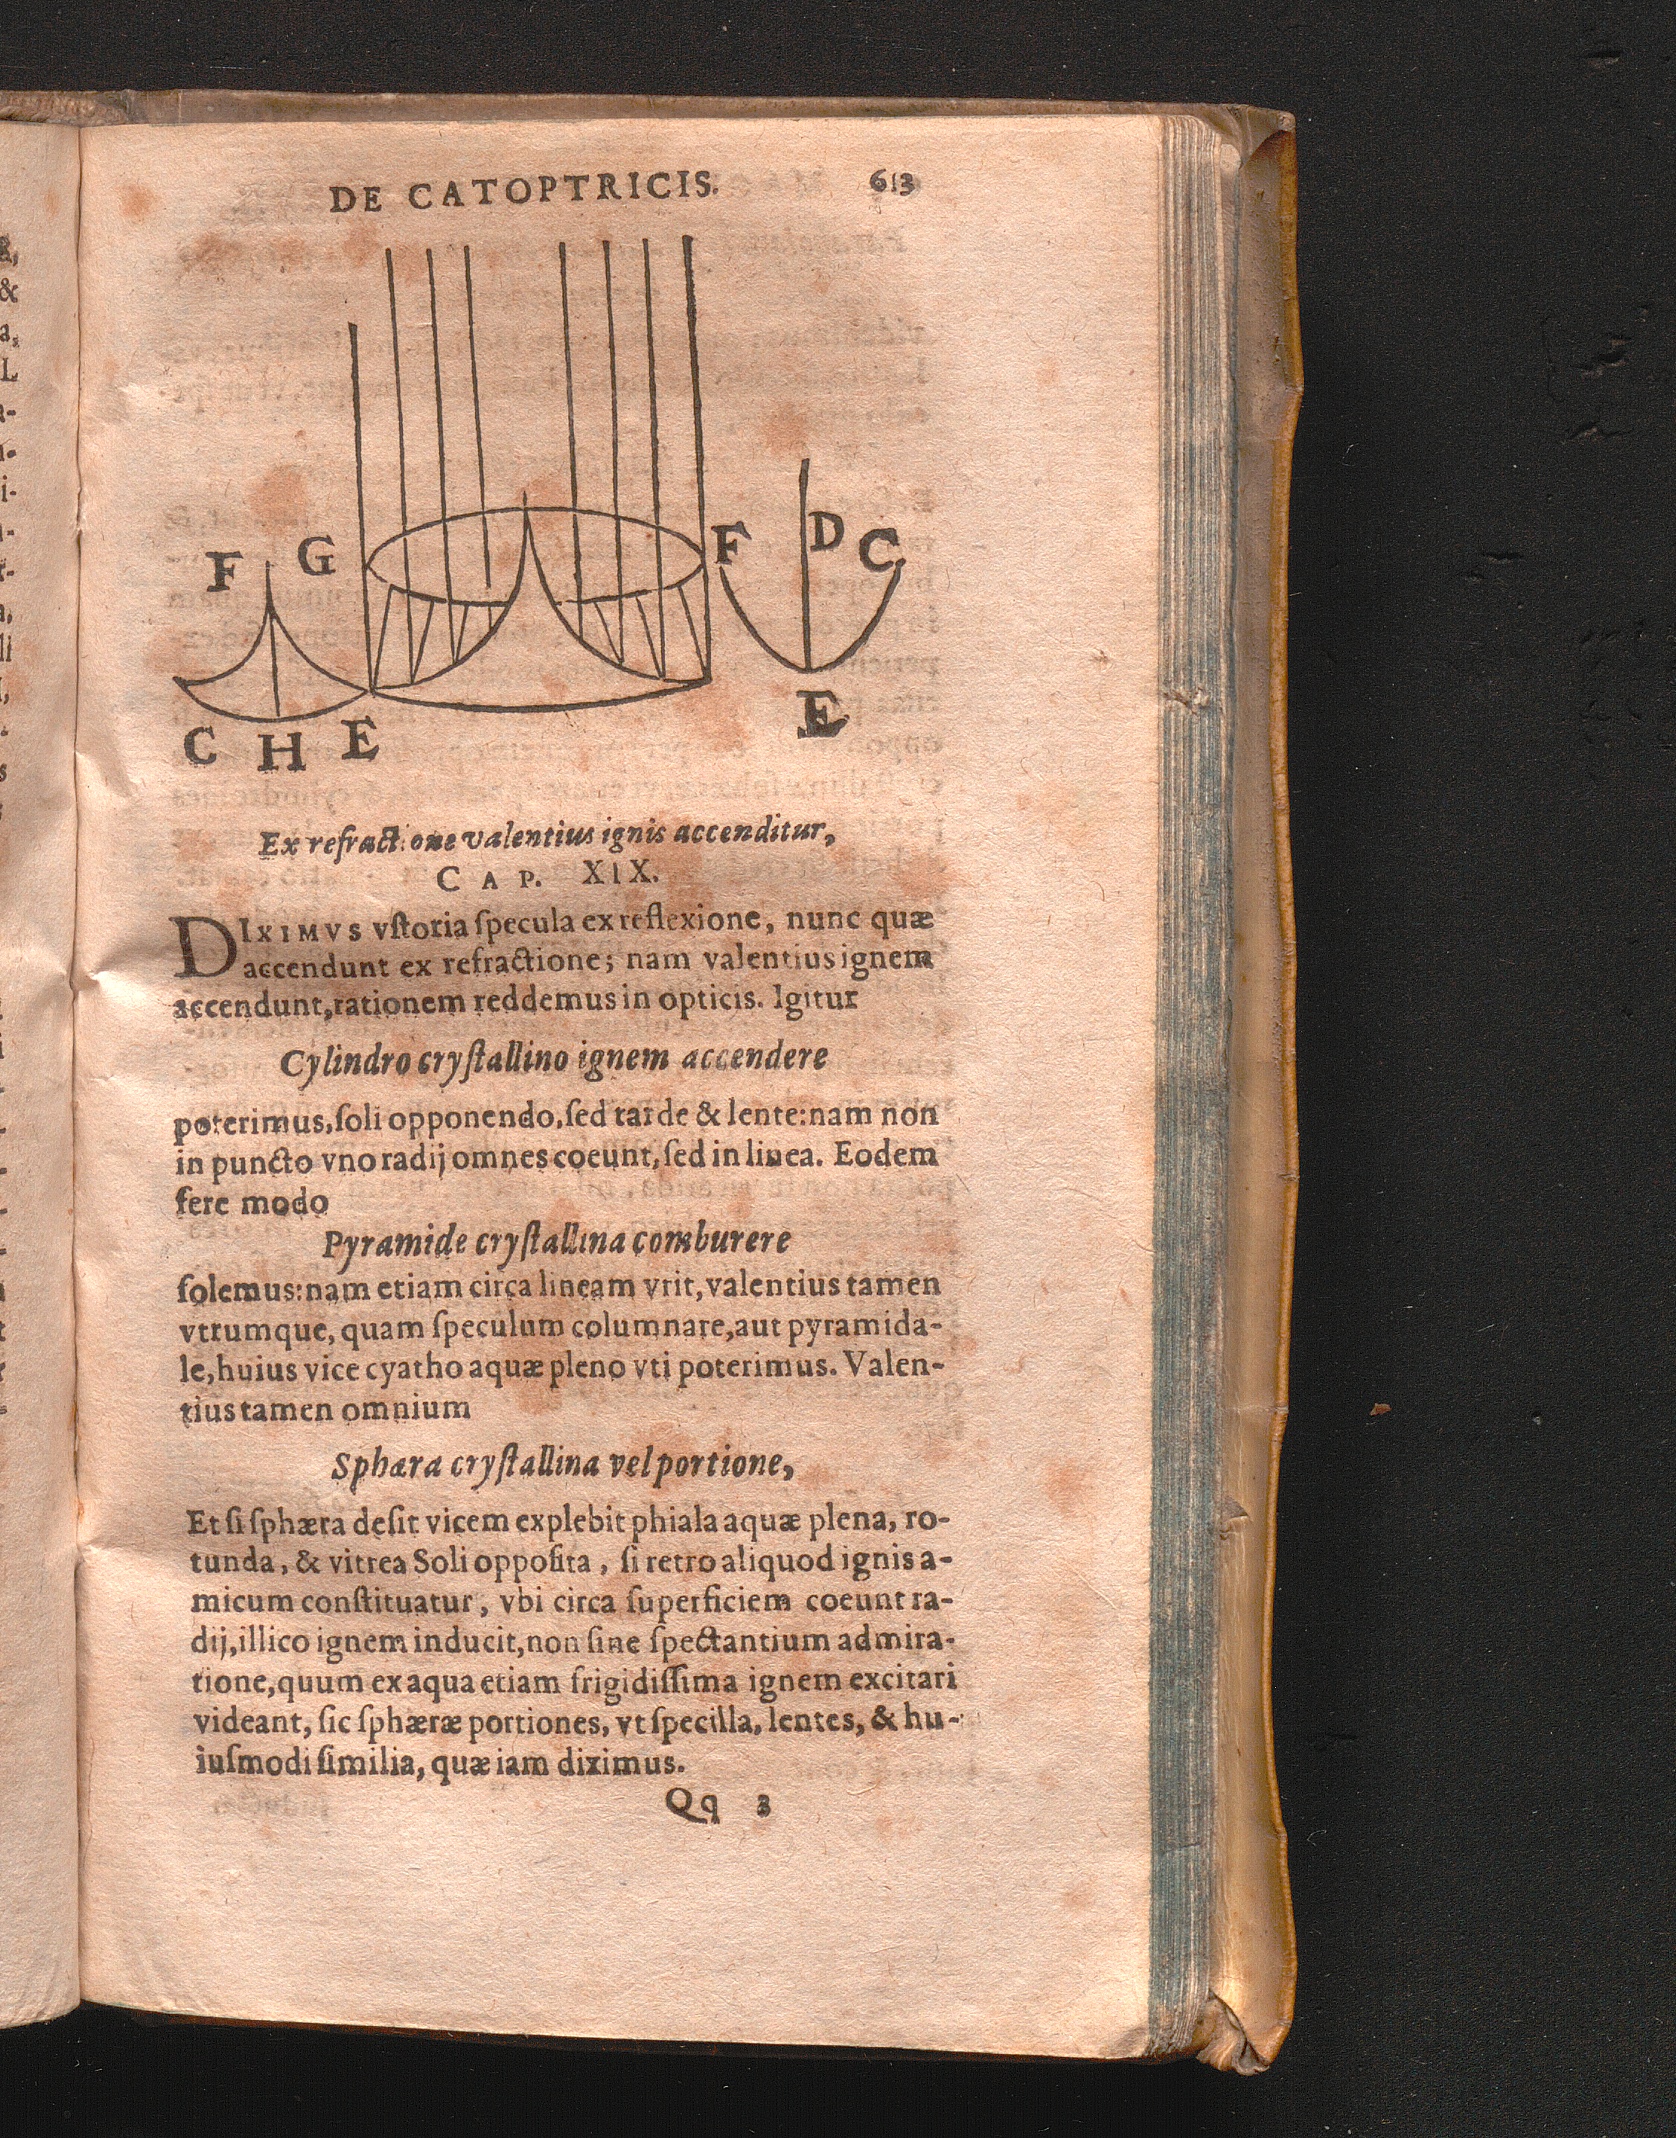 DE CATOPTRICIS. 613
F G F D C
C H E E
Ex refractione valentius ignis accenditur,
CAP. XIX.
DIXIMVS vſtoria ſpecula ex reflexione, nunc quæ
accendunt ex refractione; nam valentius ignem
accendunt, rationem reddemus in opticis. Igitur
Cylindro cryſtallino ignem accendere
poterimus, ſoli opponendo, ſed tarde & lente: nam non
in puncto vno radij omnes coeunt, ſed in linea. Eodem
fere modo
Pyramide cryſtallina comburere
ſolemus: nam etiam circa lineam vrit, valentius tamen
vtrumque, quam ſpeculum columnare, aut pyramida-
le, huius vice cyatho aquæ pleno vti poterimus. Valen-
tius tamen omnium
Sphæra cryſtallina vel portione,
Et ſi ſphæra deſit vicem explebit phiala aquæ plena, ro-
tunda, & vitrea Soli oppoſita, ſi retro aliquod ignis a-
micum conſtituatur, vbi circa ſuperficiem coeunt ra-
dij, illico ignem inducit, non ſine ſpectantium admira-
tione, quum ex aqua etiam frigidiſſima ignem excitari
videant, ſic ſphæræ portiones, vt ſpecilla, lentes, & hu-
iuſmodi ſimilia, quæ iam diximus.
Qq 3